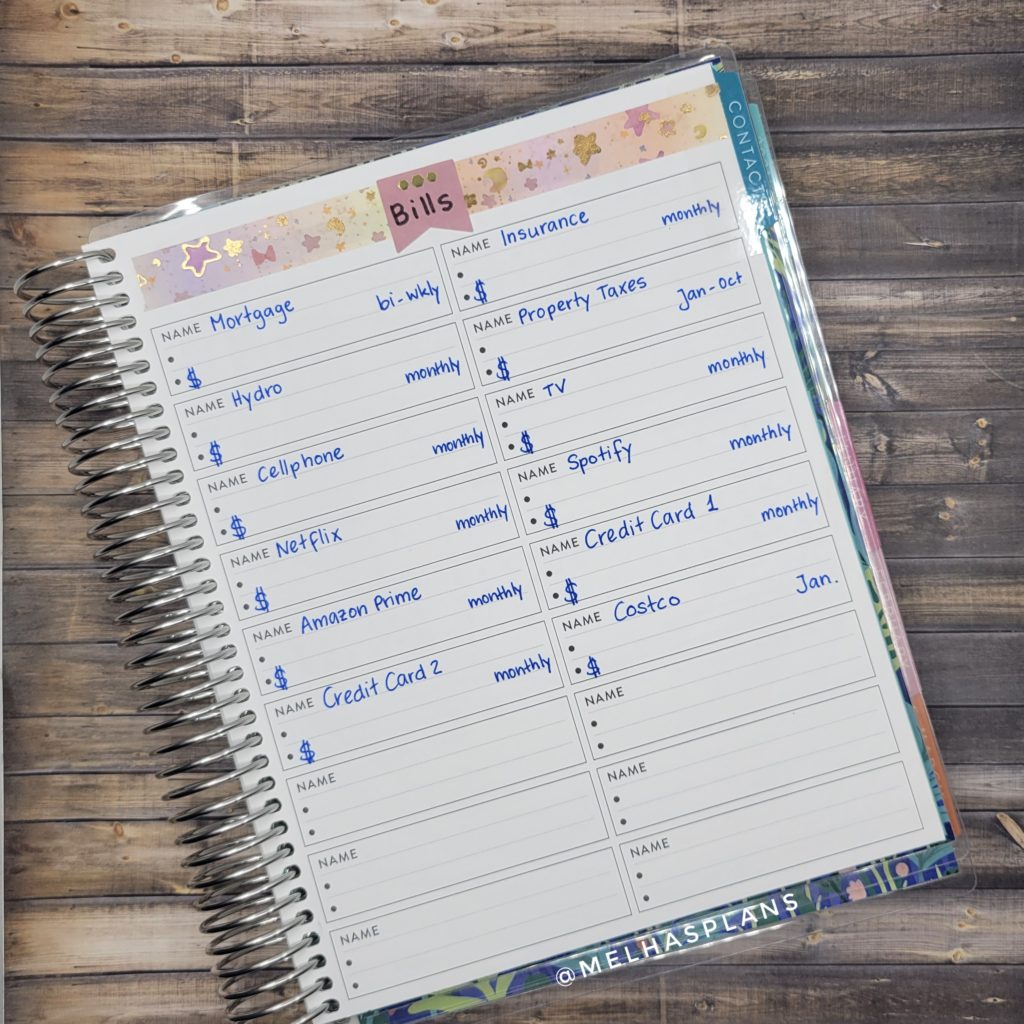 CONTACT
Bills
NAME Mortgage bi-wkly
$
NAME Hydro monthly
$
NAME Cellphone monthly
$
NAME Netflix monthly
$
NAME Amazon Prime monthly
$
NAME Credit Card 2 monthly
$
NAME
NAME
NAME
NAME Insurance monthly
$
NAME Property Taxes Jan-Oct
$
NAME TV monthly
$
NAME Spotify monthly
$
NAME Credit Card 1 monthly
$
NAME Costco Jan.
$
NAME
NAME
NAME
@MELHASPLANS